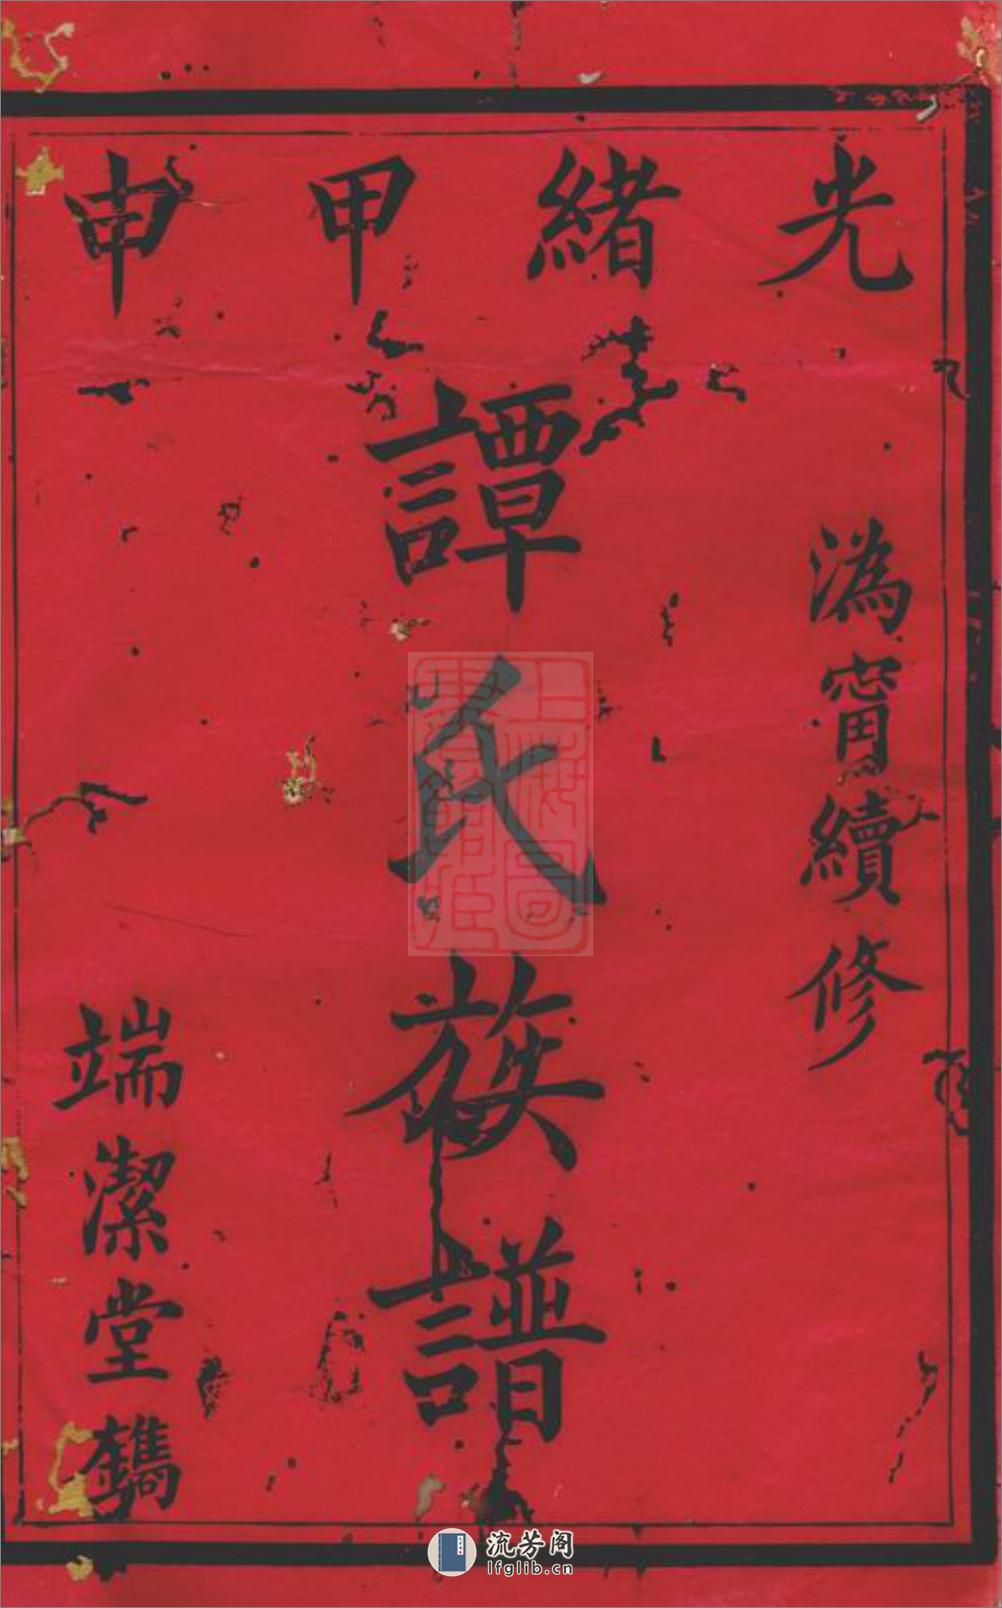 光緒甲申
溈甯續修
譚氏族譜
端潔堂鐫
流芳阁
lfglib.cn